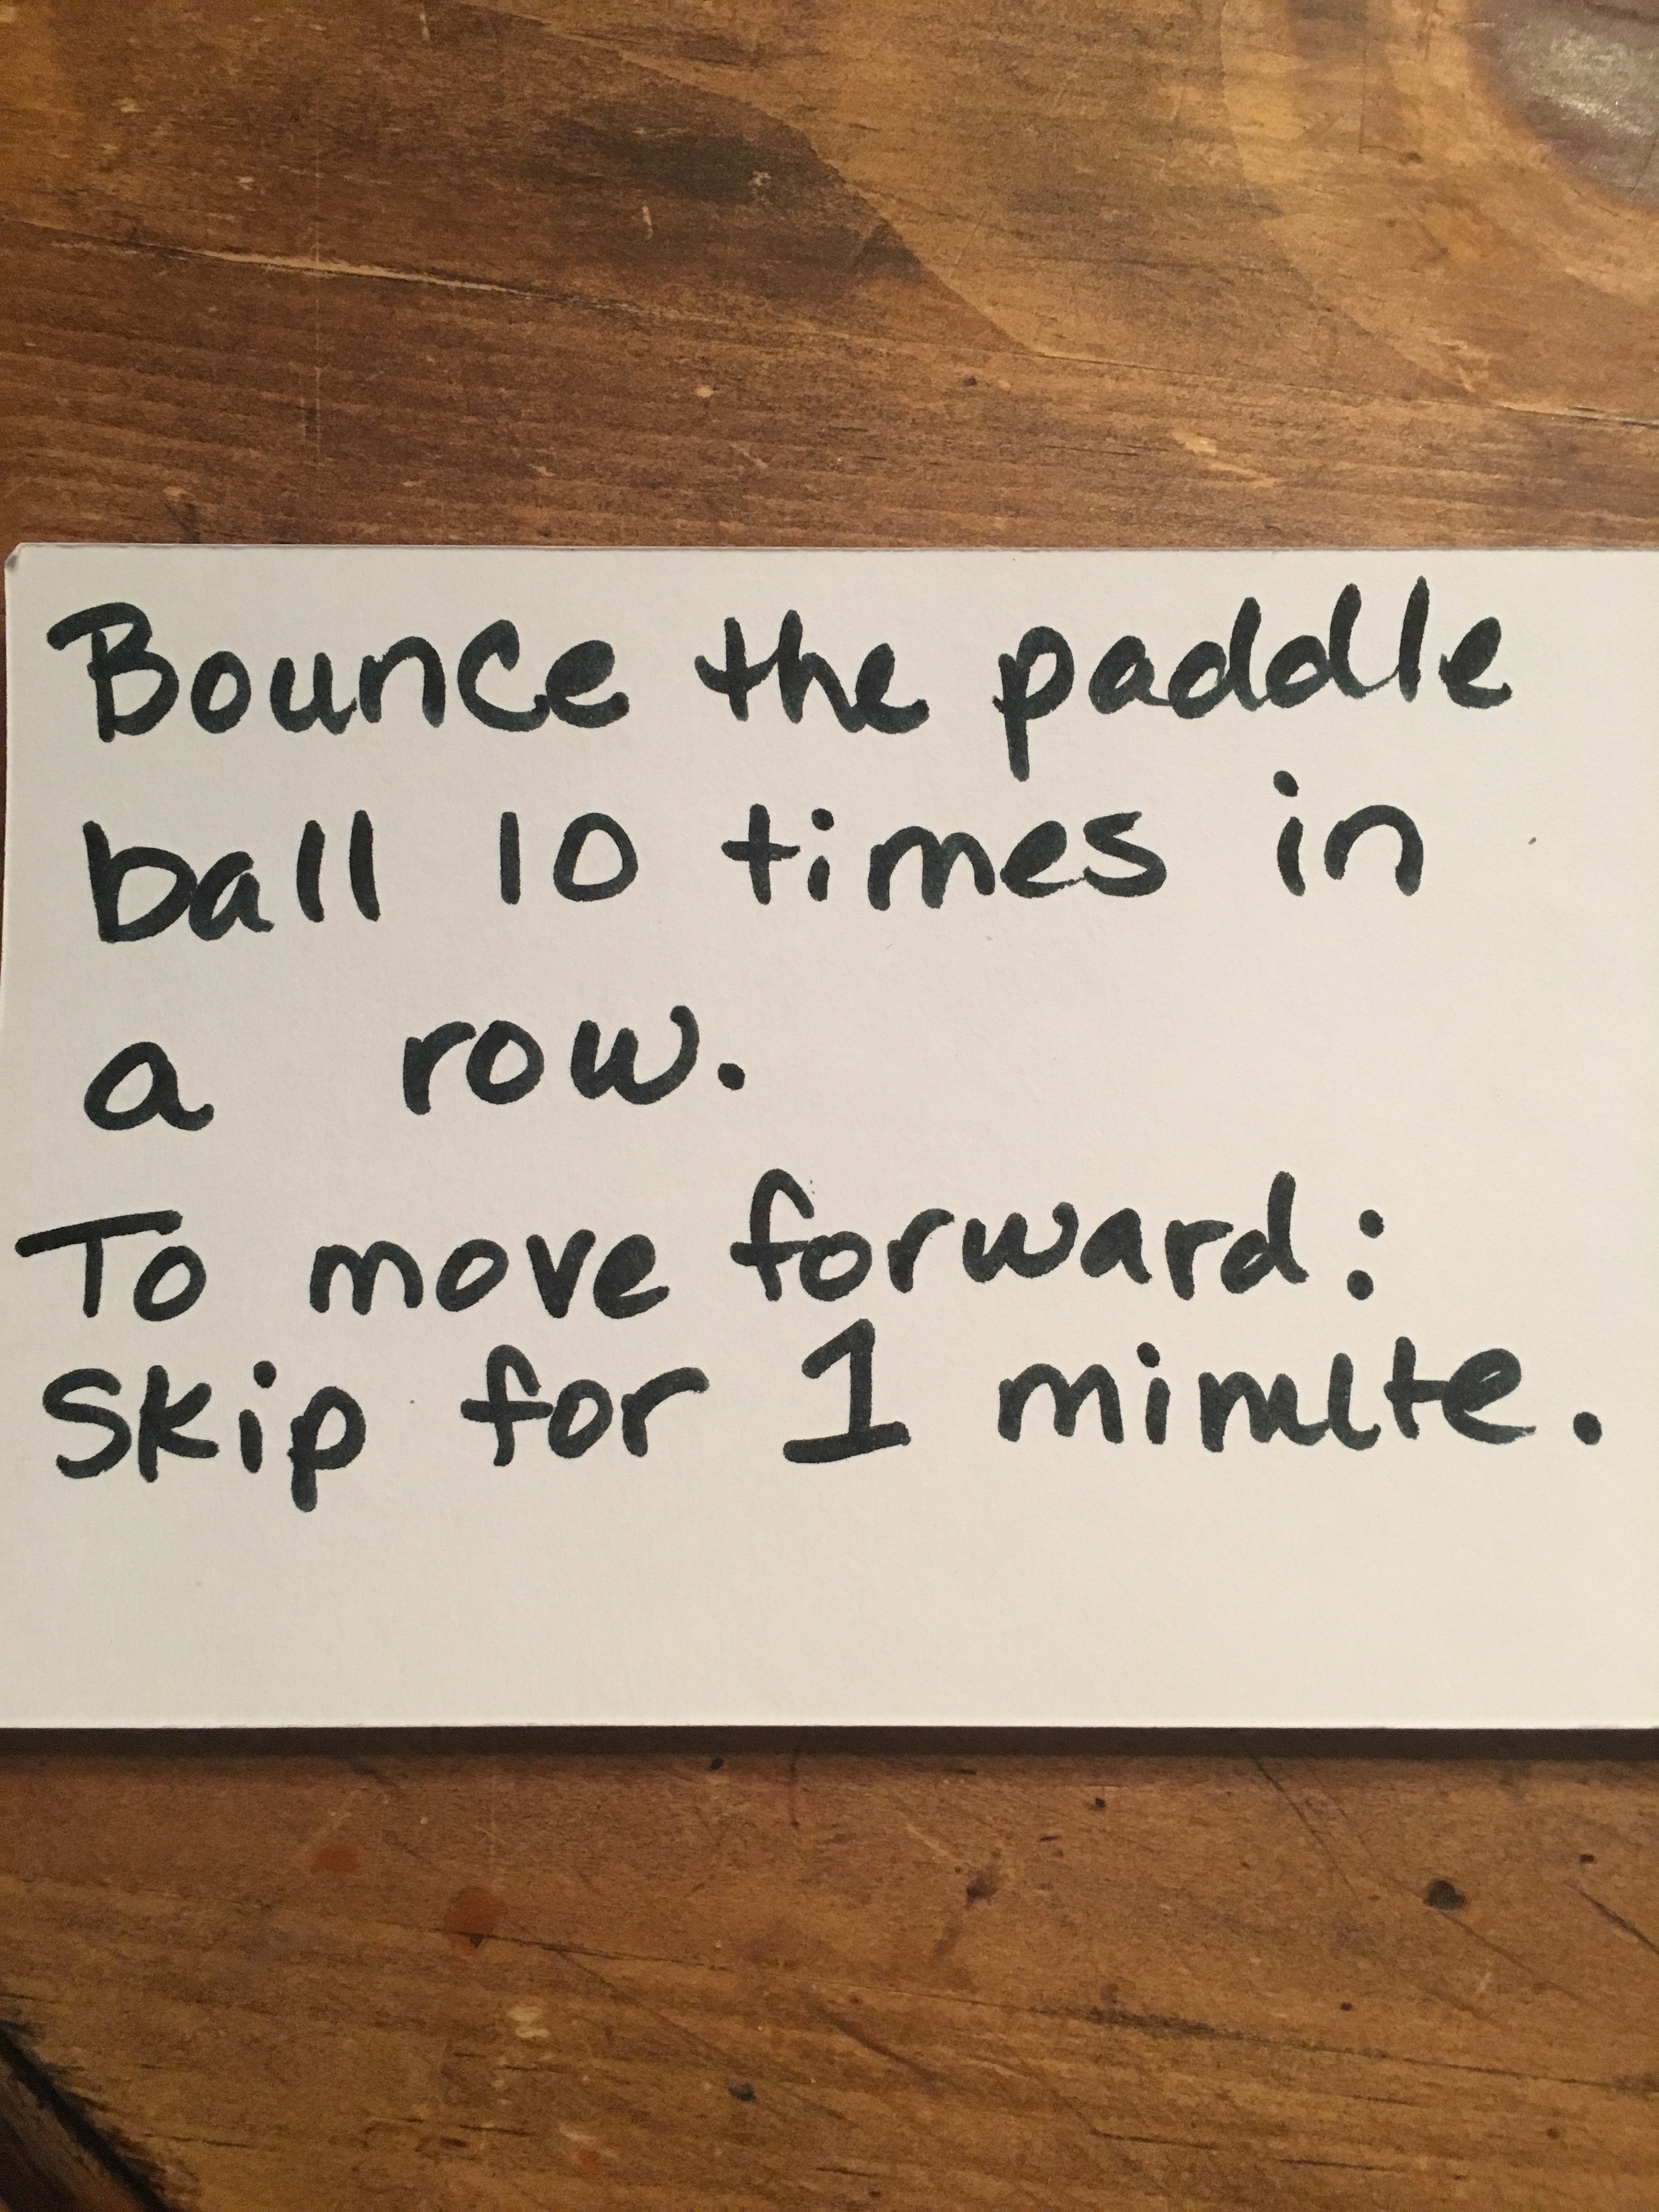 Bounce the paddle
ball 10 times in
a row.
To move forward:
Skip for 1 minute.